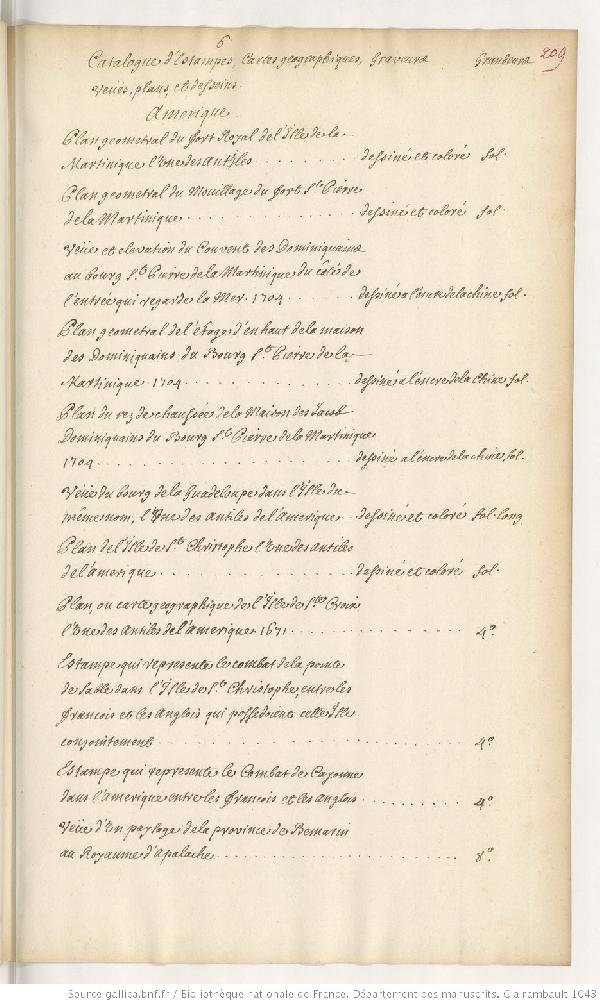 6
Catalogue d'Estampes, Cartes geographiques, Graveures Grandeurs 209
veües, plans, et desseins.
Amerique
Plan geometral du fort Royal de l'Isle de la
Martinique l'Une des Antilles . . . . . . . . dessiné et coloré fol.
Plan geometral du Mouillage du fort St. Pierre
de la Martinique . . . . . . . . . . . . dessiné et coloré fol.
Veüe et elevation du Couvent des Dominiquains
au bourg St. Pierre de la Martinique du côté de
l'entrée qui regarde la Mer. 1704 . . . . . . dessiné a l'encre de la chine fol.
Plan geometral de l'étage d'en haut de la maison
des Dominiquains du Bourg St. Pierre de la
Martinique 1704 . . . . . . . . . . . . dessiné a l'encre de la Chine fol.
Plan du rez de chaussée de la Maison des Jacob
Dominiquains du Bourg St. Pierre de la Martinique
1704 . . . . . . . . . . . . . . . . dessiné a l'encre de la chine fol.
Veüe du bourg de la Guadeloupe dans l'Isle du
même nom, l'Une des Antiles de l'Amerique dessiné et coloré fol. long
Plan de l'Isle de St. Christophe l'Une des Antiles
de l'amerique . . . . . . . . . . . . . dessiné et coloré fol.
Plan, ou carte geographique de l'Isle de Ste. Croix
l'Une des Antiles de l'amerique 1671 . . . . . . . . . . 4º.
Estampe qui represente le combat de la pointe
de Sable dans l'Isle de St. Christophe, entre les
françois et les Anglois qui possedoient cette Isle
conjointement . . . . . . . . . . . . . . . . . . 4º.
Estampe qui represente le Combat de Cayenne
dans l'amerique entre les françois et les anglois . . . . . . . 4º.
Veüe d'Un paysage de la province de Bemarin
au Royaume d'Apalache . . . . . . . . . . . . . . . 8º.
Source gallica.bnf.fr / Bibliothèque nationale de France. Département des manuscrits. Clairambault 1043